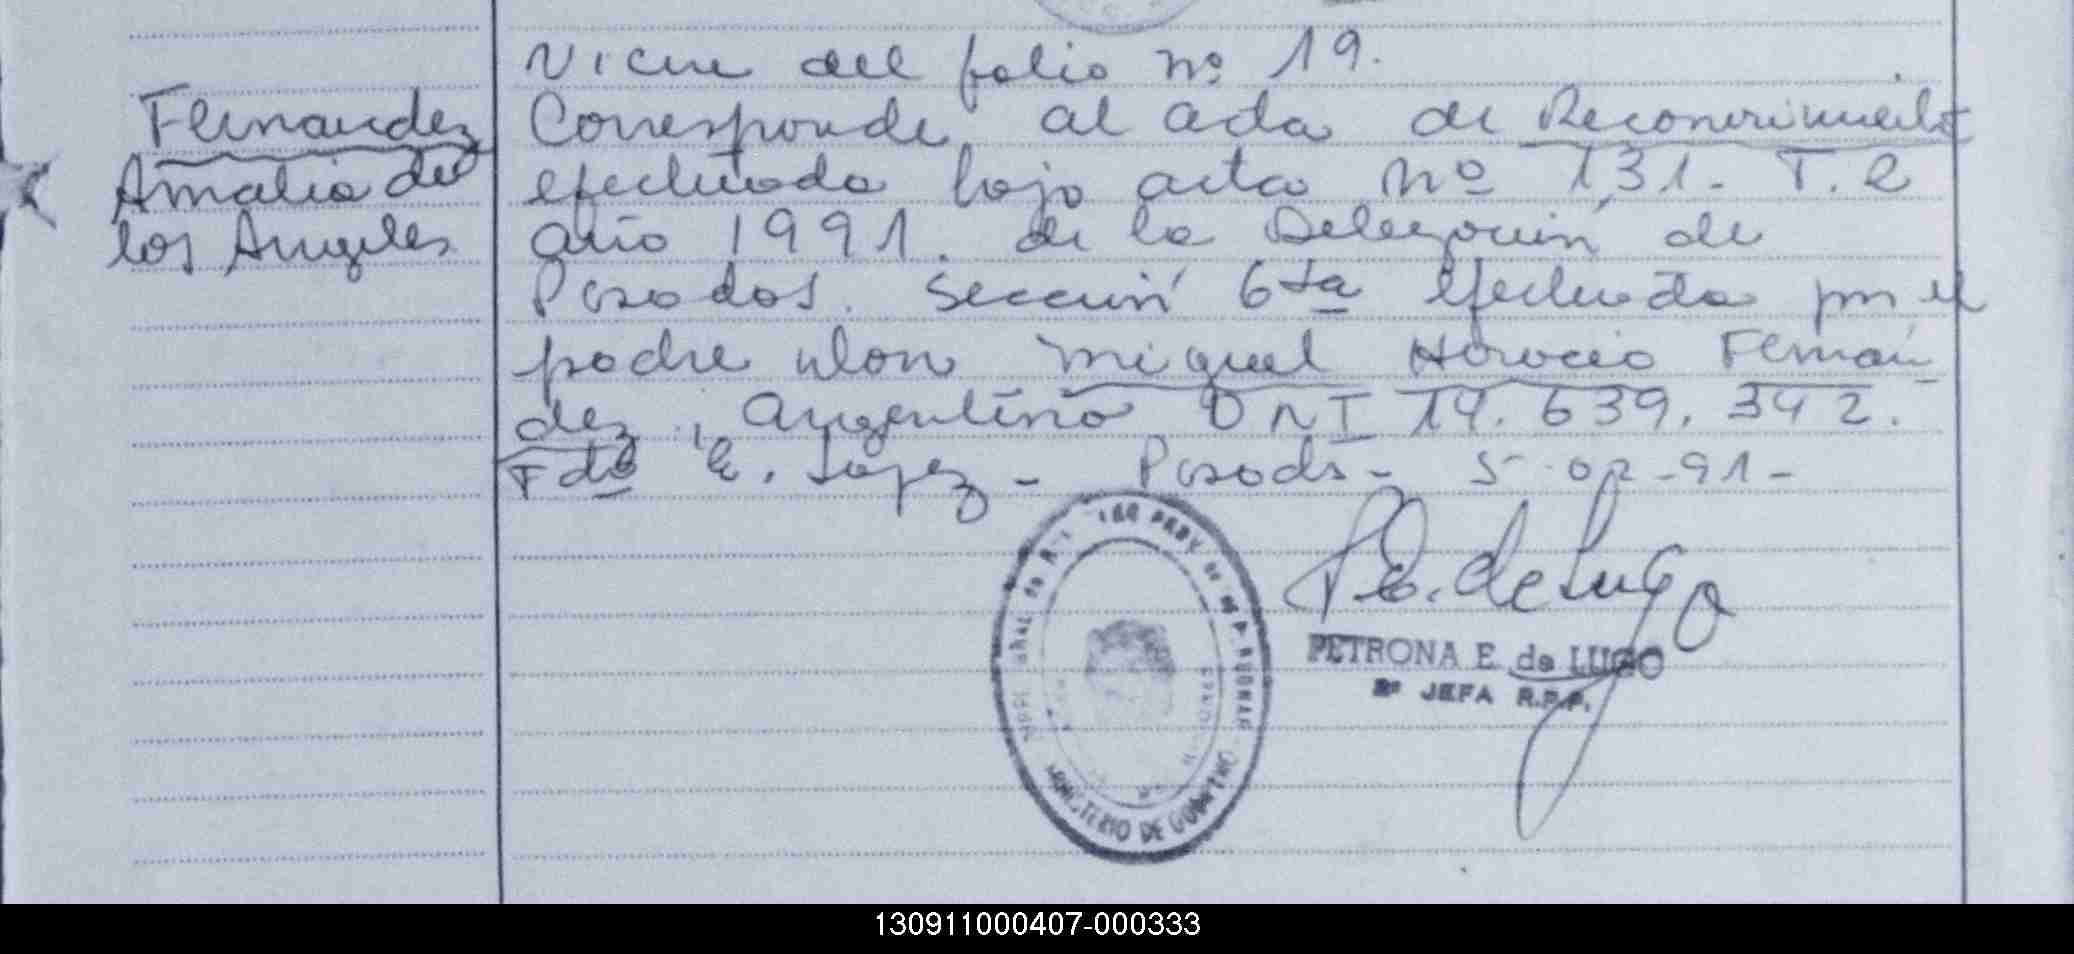 Viene del folio nº 19.
Fernandez
Amalia de
los Angeles
Corresponde al acta de Reconocimiento
efectuado bajo acta nº 131. T. 2
año 1991. de la Delegación de
Posadas. Sección 6ta efectuada por el
padre don Miguel Horacio Fernán
dez, argentino DNI 14.639.342.
Fdo E. Lopez - Posadas - 5-02-91-
P.E. de Lugo
PETRONA E. de LUGO
2º JEFA R.P.P.
MINISTERIO DE GOBIERNO
130911000407-000333